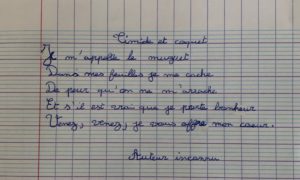 Timide et coquet
Je m'appelle le muguet
Dans mes feuilles je me cache
De peur qu'on ne m'arrache
Et s'il est vrai que je porte bonheur
Venez, venez, je vous offre mon coeur.
Auteur inconnu